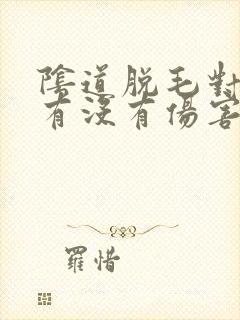 陰道脫毛對
有沒有傷害
羅惜